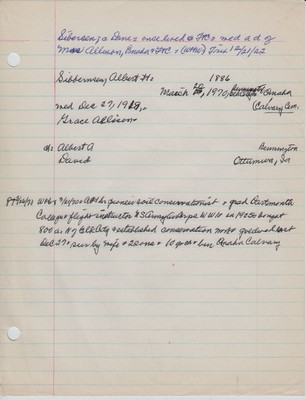 Sibbersen; a Dane; once lived @ FtC & med a d of
Mos Allison, Omaha & FtC: (WHW) Trib 12/21/22
Sibbernsen, Albert H: 1886
March 28, 1970, Bennington Omaha
Calvary Cem.
med Dec 27, 1917,
Grace Allison.
ch: Albert A Bennington
David Ottumwa, Ia
WOW 3/30/70 AHS pioneer soil conservationist & grad Dartmouth
College & flight instructor US Army Air Corps WW I & in 1920s bought
800 a. N of Elk City & established conservation
Dec 27 & surv by wife & 2 sons & 10 grch & bur Omaha Calvary